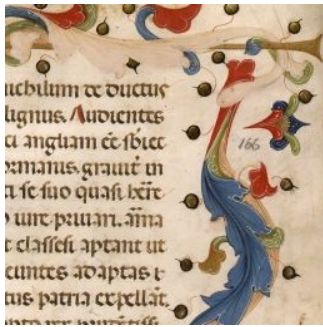 uchilium de ductus
lignus. Audientes
ci angliam cē sbiec
ormanis. grauit in
ti se suo quasi hēre
o iure priuari. aīma
t classesi aptant ut
euntes adaptas i-
tus patria expellāt.
166